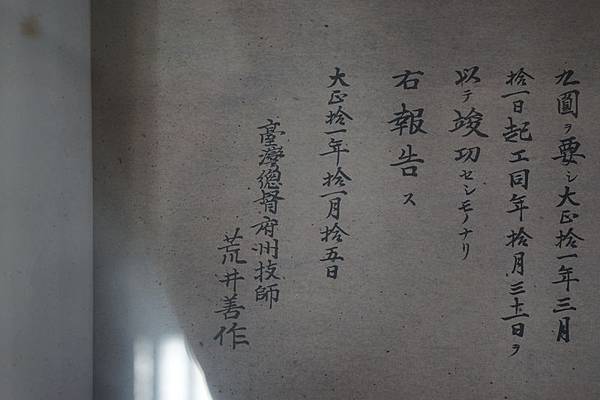 九圓ヲ要シ大正拾一年三月
拾一日起工同年拾月三十一日ヲ
以テ竣功セシモノナリ
右報告ス
大正拾一年拾一月拾五日
臺灣總督府州技師
荒井善作